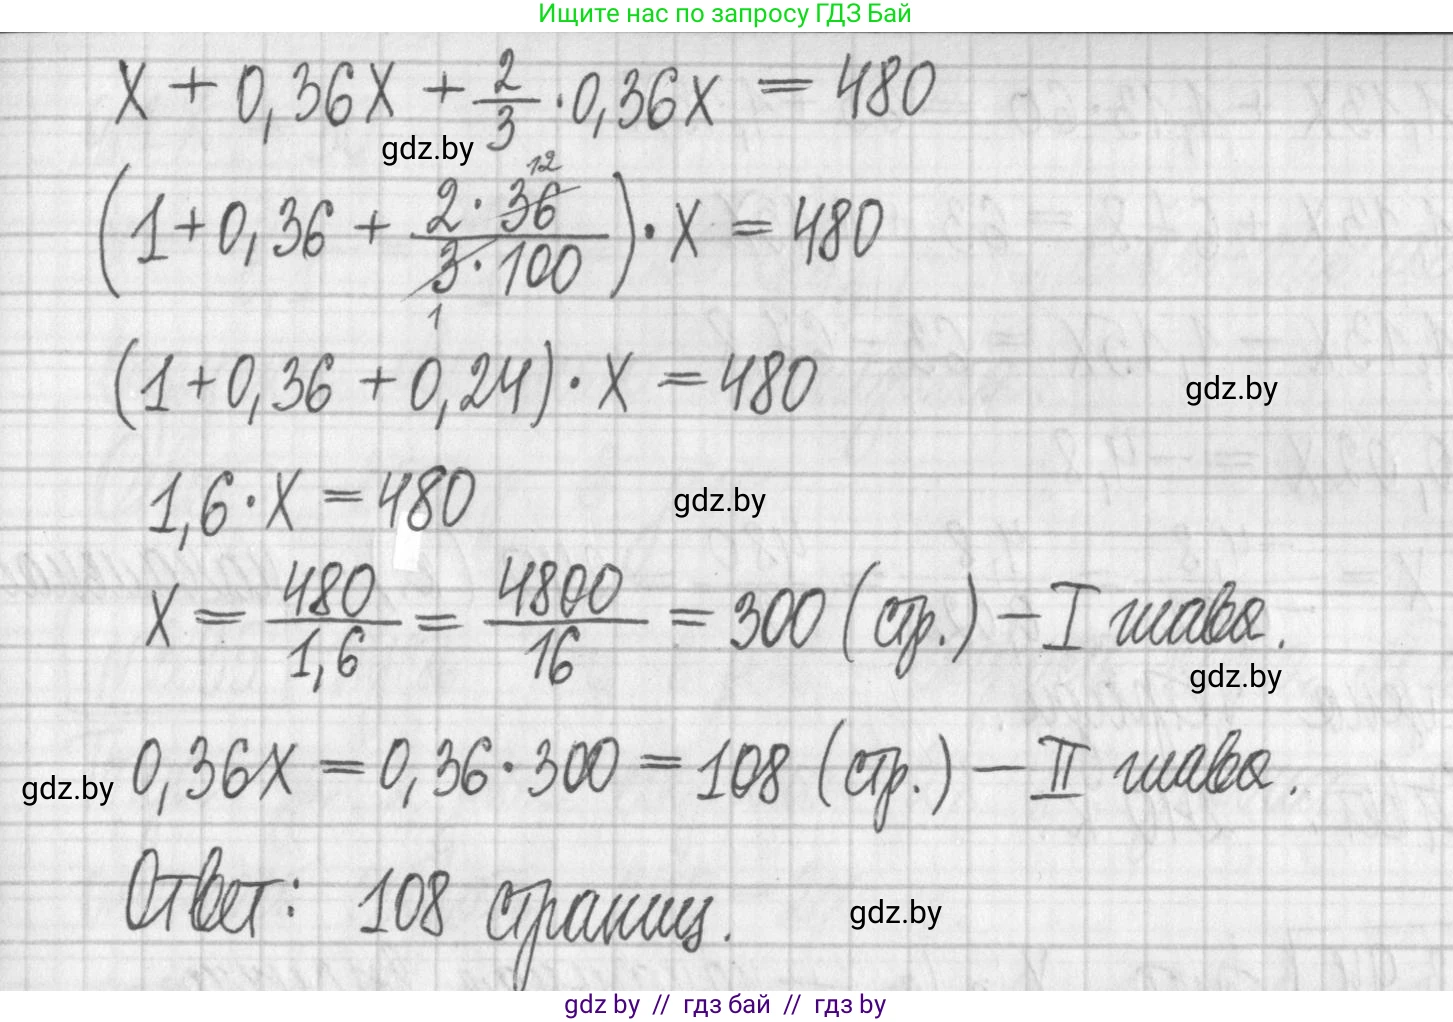 Ищите нас по запросу ГДЗ Бай
x + 0,36x + 2/3 · 0,36x = 480
gdz.by
(1 + 0,36 + 2 · 36 12 / 3 · 100 1) · x = 480
(1 + 0,36 + 0,24) · x = 480
gdz.by
1,6 · x = 480
gdz.by
x = 480/1,6 = 4800/16 = 300 (стр.) – I глава.
gdz.by
0,36x = 0,36 · 300 = 108 (стр.) – II глава.
gdz.by
Ответ: 108 страниц.
gdz.by
gdz by // гдз бай // гдз by